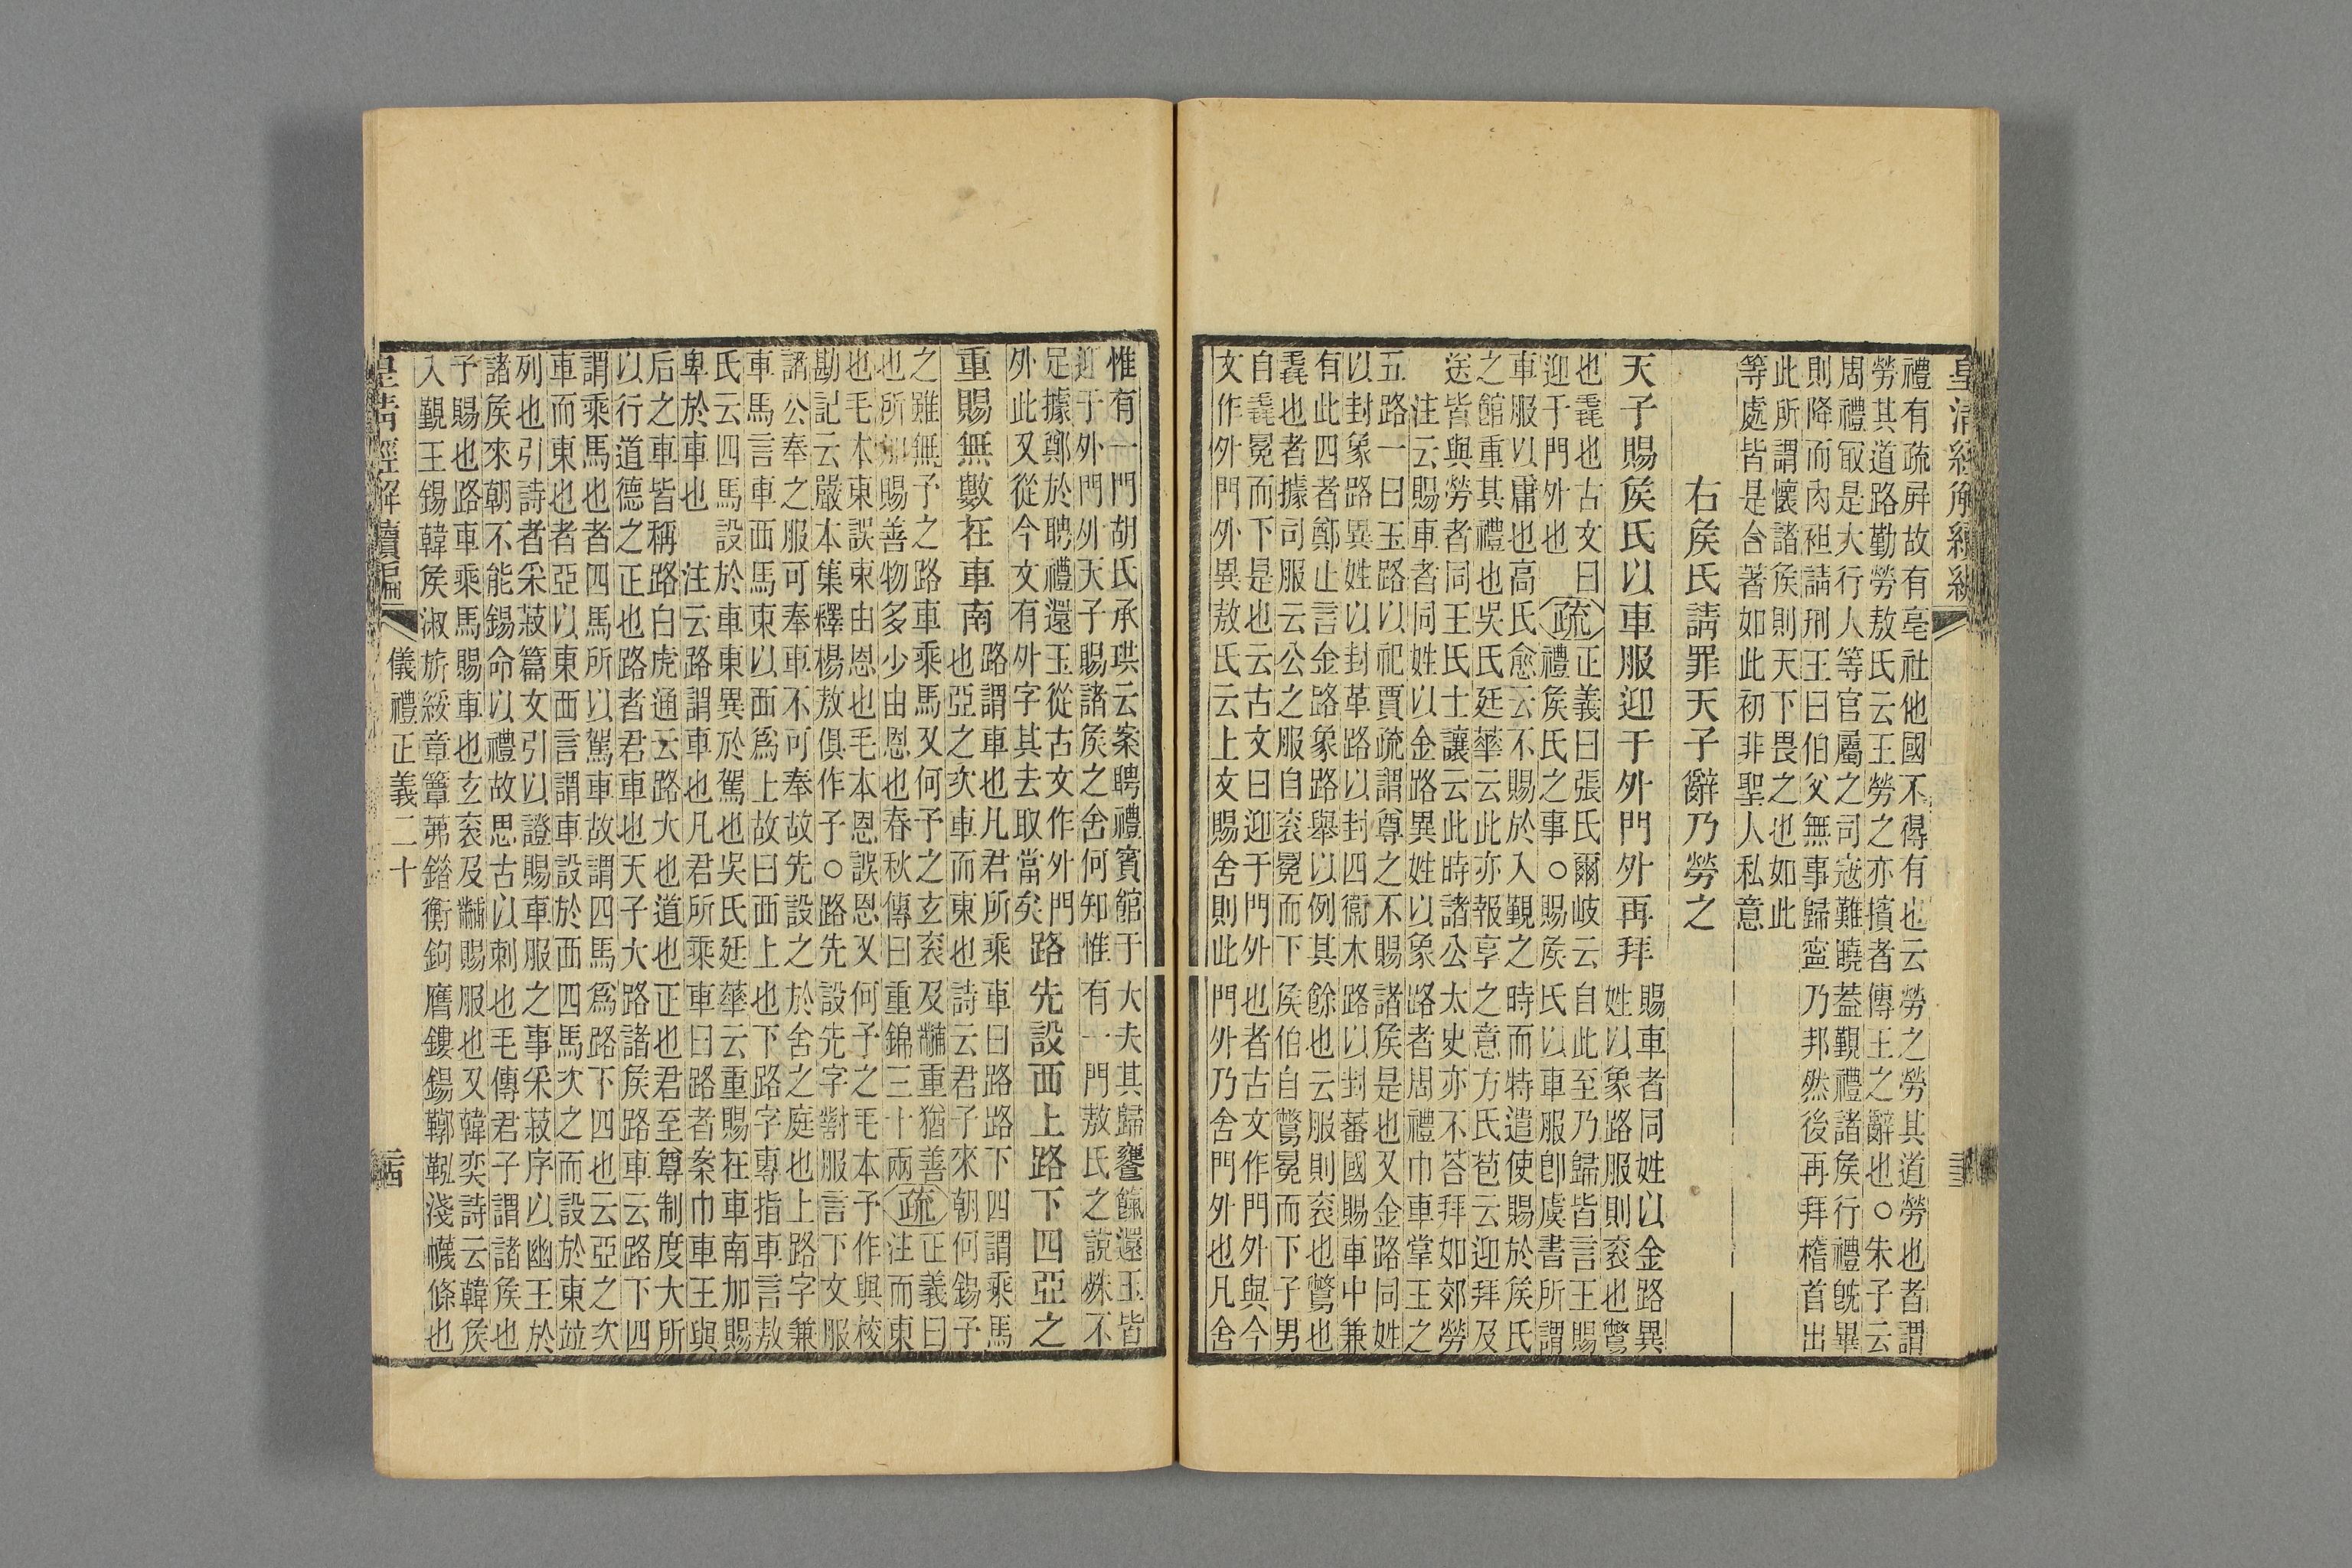 皇清經解續編
禮有疏屛故有亳社他國不得有也云勞之勞其道勞也者謂
勞其道路勤勞敖氏云王勞之亦擯者傳王之辭也○朱子云
周禮㝡是大行人等官屬之司寇難曉葢覲禮諸矦行禮旣畢
則降而肉袒請刑王曰伯父無事歸寧乃邦然後再拜稽首出
此所謂懷諸矦則天下畏之也如此
等處皆是合著如此初非聖人私意
右矦氏請罪天子辭乃勞之
天子賜矦氏以車服迎于外門外再拜
賜車者同姓以金路異
姓以象路服則衮也鷩
也毳也古文曰
迎于門外也
疏
正義曰張氏爾岐云自此至乃歸皆言王賜
禮矦氏之事○賜矦氏以車服卽虞書所謂
車服以庸也高氏愈云不賜於入覲之時而特遣使賜於矦氏
之館重其禮也吳氏廷華云此亦報享之意方氏苞云迎拜及
送皆與勞者同王氏士讓云此時諸公太史亦不荅拜如郊勞
注云賜車者同姓以金路異姓以象路者周禮巾車掌王之
五路一曰玉路以祀賈疏謂尊之不賜諸矦是也又金路同姓
以封象路異姓以封革路以封四衞木路以封蕃國賜車中兼
有此四者鄭止言金路象路舉以例其餘也云服則衮也鷩也
毳也者據司服云公之服自衮冕而下矦伯自鷩冕而下子男
自毳冕而下是也云古文曰迎于門外也者古文作門外與今
文作外門外異敖氏云上文賜舍則此門外乃舍門外也凡舍
惟有一門胡氏承珙云案聘禮賓館于大夫其歸饔餼還玉皆
迎于外門外天子賜諸矦之舍何知惟有一門敖氏之說殊不
足據鄭於聘禮還玉從古文作外門
外此又從今文有外字其去取當矣
路先設西上路下四亞之
重賜無數在車南
路謂車也凡君所乘車曰路路下四謂乘馬
也亞之次車而東也詩云君子來朝何錫予
之雖無予之路車乘馬又何予之玄衮及黼重猶善
也所加賜善物多少由恩也春秋傳曰重錦三十兩
疏
正義曰
注而東
也毛本東誤東由恩也毛本恩誤恩又何予之毛本予作與挍
勘記云嚴本集釋楊敖俱作予○路先設先字對服言下文服
諸公奉之服可奉車不可奉故先設之於舍之庭也上路字兼
車馬言車西馬東以西爲上故曰西上也下路字專指車言敖
氏云四馬設於車東異於駕也吳氏廷華云重賜在車南加賜
卑於車也 注云路謂車也凡君所乘車曰路者案巾車王與
后之車皆稱路白虎通云路大也道也正也君至尊制度大所
以行道德之正也路者君車也天子大路諸矦路車云路下四
謂乘馬也者四馬所以駕車故謂四馬爲路下四也云亞之次
車而東也者亞以東西言謂車設於西四馬次之而設於東竝
列也引詩者采菽篇文引以證賜車服之事采菽序以幽王於
諸矦來朝不能錫命以禮故思古以刺也毛傳君子謂諸矦也
予賜也路車乘馬賜車也玄衮及黼賜服也又韓奕詩云韓矦
入覲王錫韓矦淑旂綏章簟茀錯衡鉤膺鏤鍚鞹鞃淺幭鞗也
皇清經解續編
儀禮正義二十